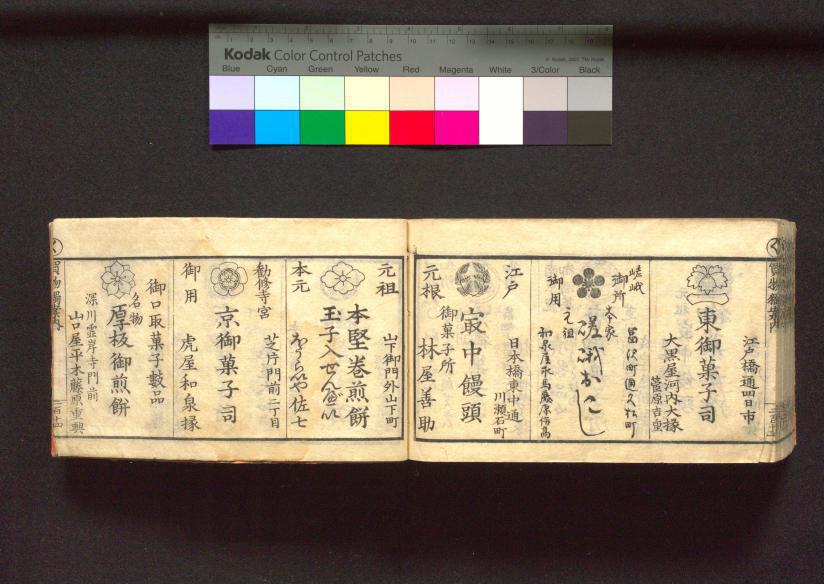 Kodak Color Control Patches
Blue Cyan Green Yellow Red Magenta White 3/Color Black
江戸橋通四日市
東御菓子司
大黒屋河内大掾
菅原吉重
嵯峨
御所
御用
本家
元祖
嵯峨おこし
江戸
日本橋東中通
川瀬石町
㝡中饅頭
御菓子所
元根
林屋善助
元祖
山下御門外山下町
本堅巻煎餅
玉子入せんべい
本元
佐七
勧修寺宮
芝片門前二丁目
京御菓子司
御用
虎屋和泉掾
御口取菓子数品
名物
厚板御煎餅
深川霊岸寺門前
山口屋平本藤原重興